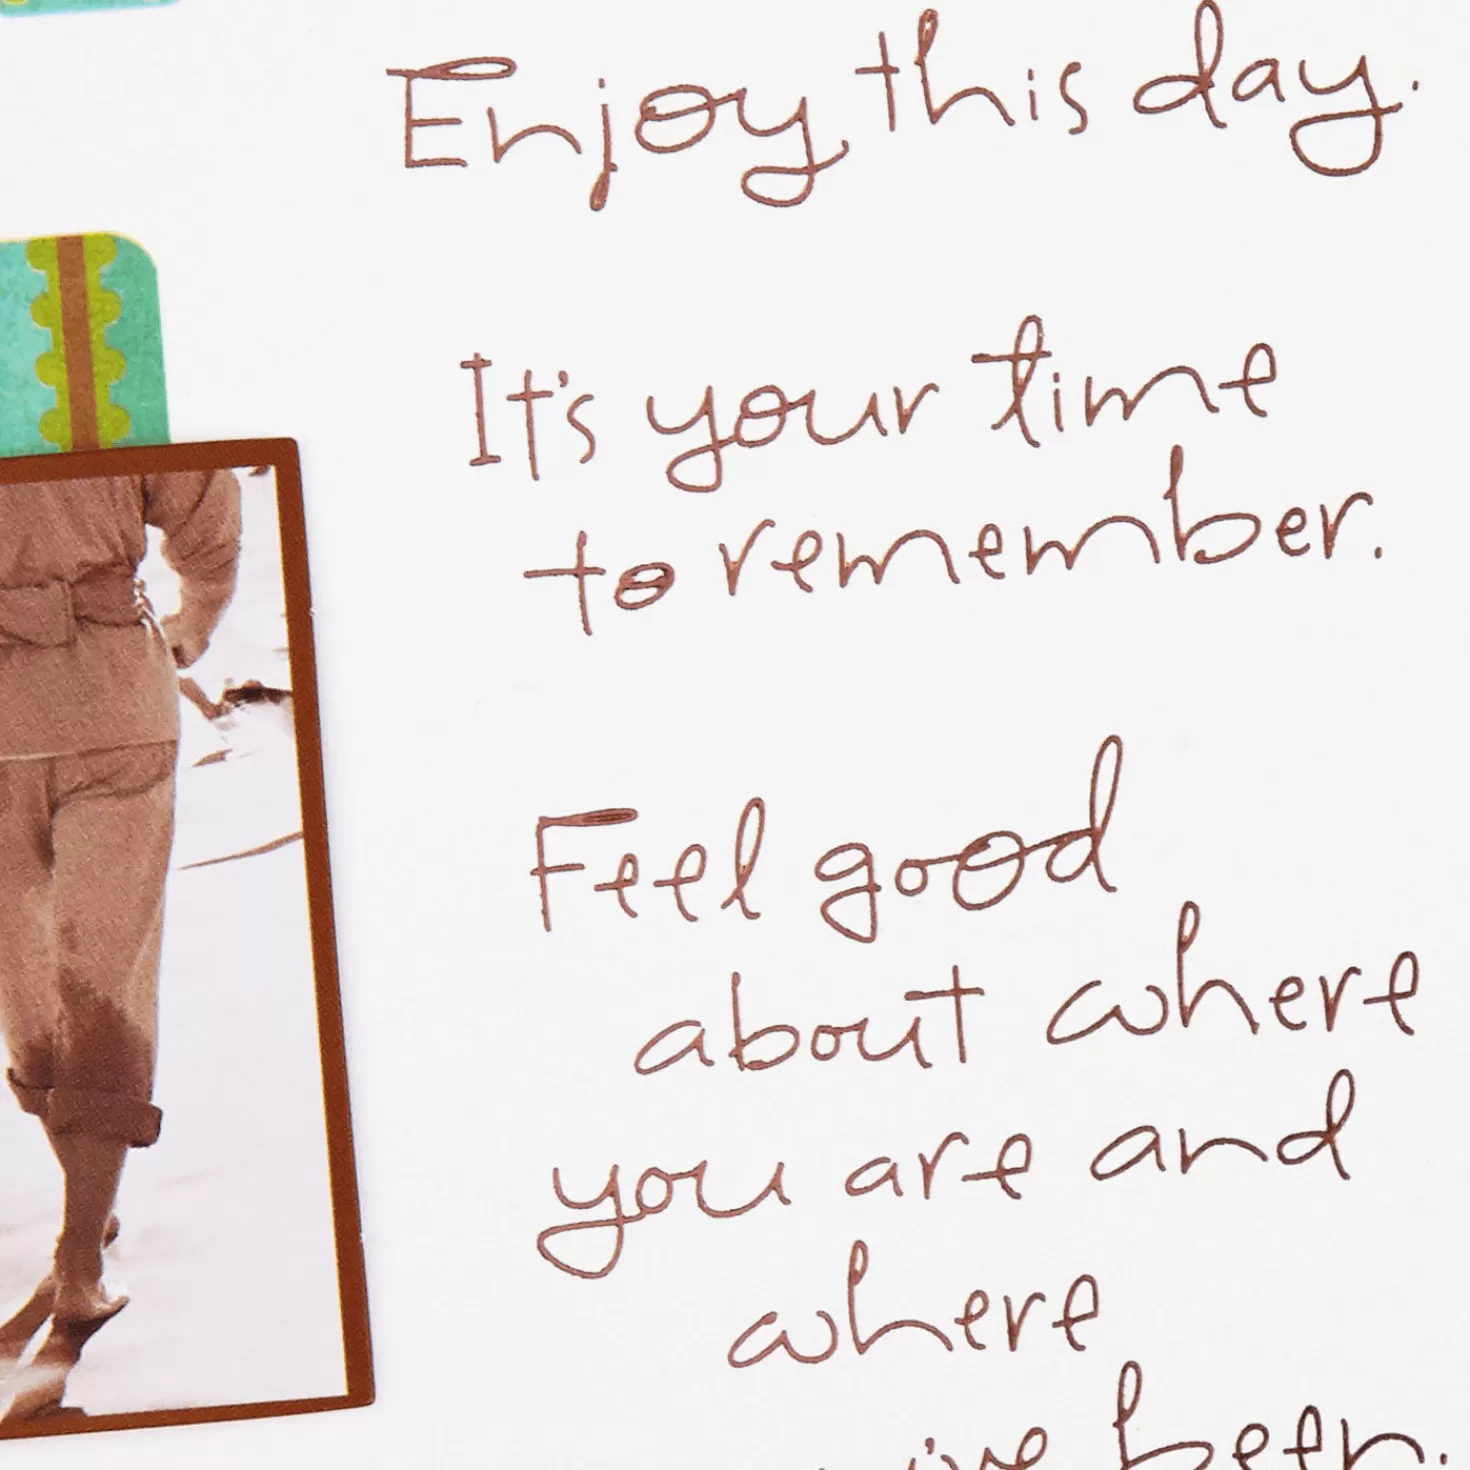 Enjoy this day.
It's your time
to remember.
Feel good
about where
you are and
where
been.